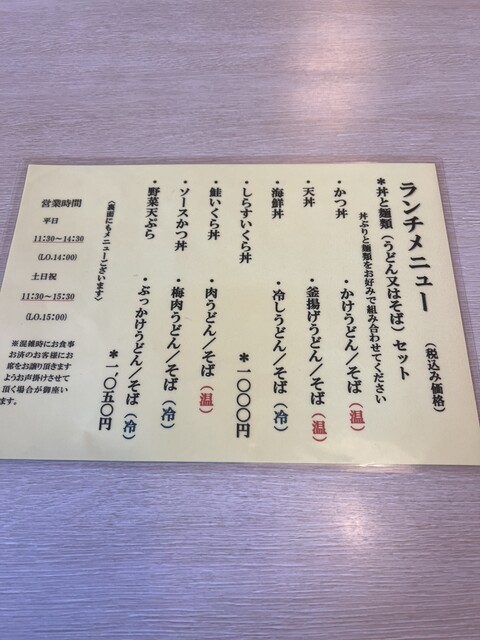 ランチメニュー
(税込み価格)
*丼と麺類(うどん又はそば)セット
丼ぶりと麺類をお好みで組み合わせてください
・かつ丼
・かけうどん/そば(温)
・天丼
・釜揚げうどん/そば(温)
・海鮮丼
・冷しうどん/そば(冷)
・しらすいくら丼
*一、〇〇〇円
・鮭いくら丼
・肉うどん/そば(温)
・ソースかつ丼
・梅肉うどん/そば(冷)
・野菜天ぷら
・ぶっかけうどん/そば(冷)
*一、〇五〇円
(裏面にもメニューございます)
営業時間
平日
11:30~14:30
(LO.14:00)
土日祝
11:30~15:30
(LO.15:00)
※混雑時にお食事
お済のお客様にお
席をお譲り頂きます
ようお声掛けさせて
頂く場合が御座い
ます。